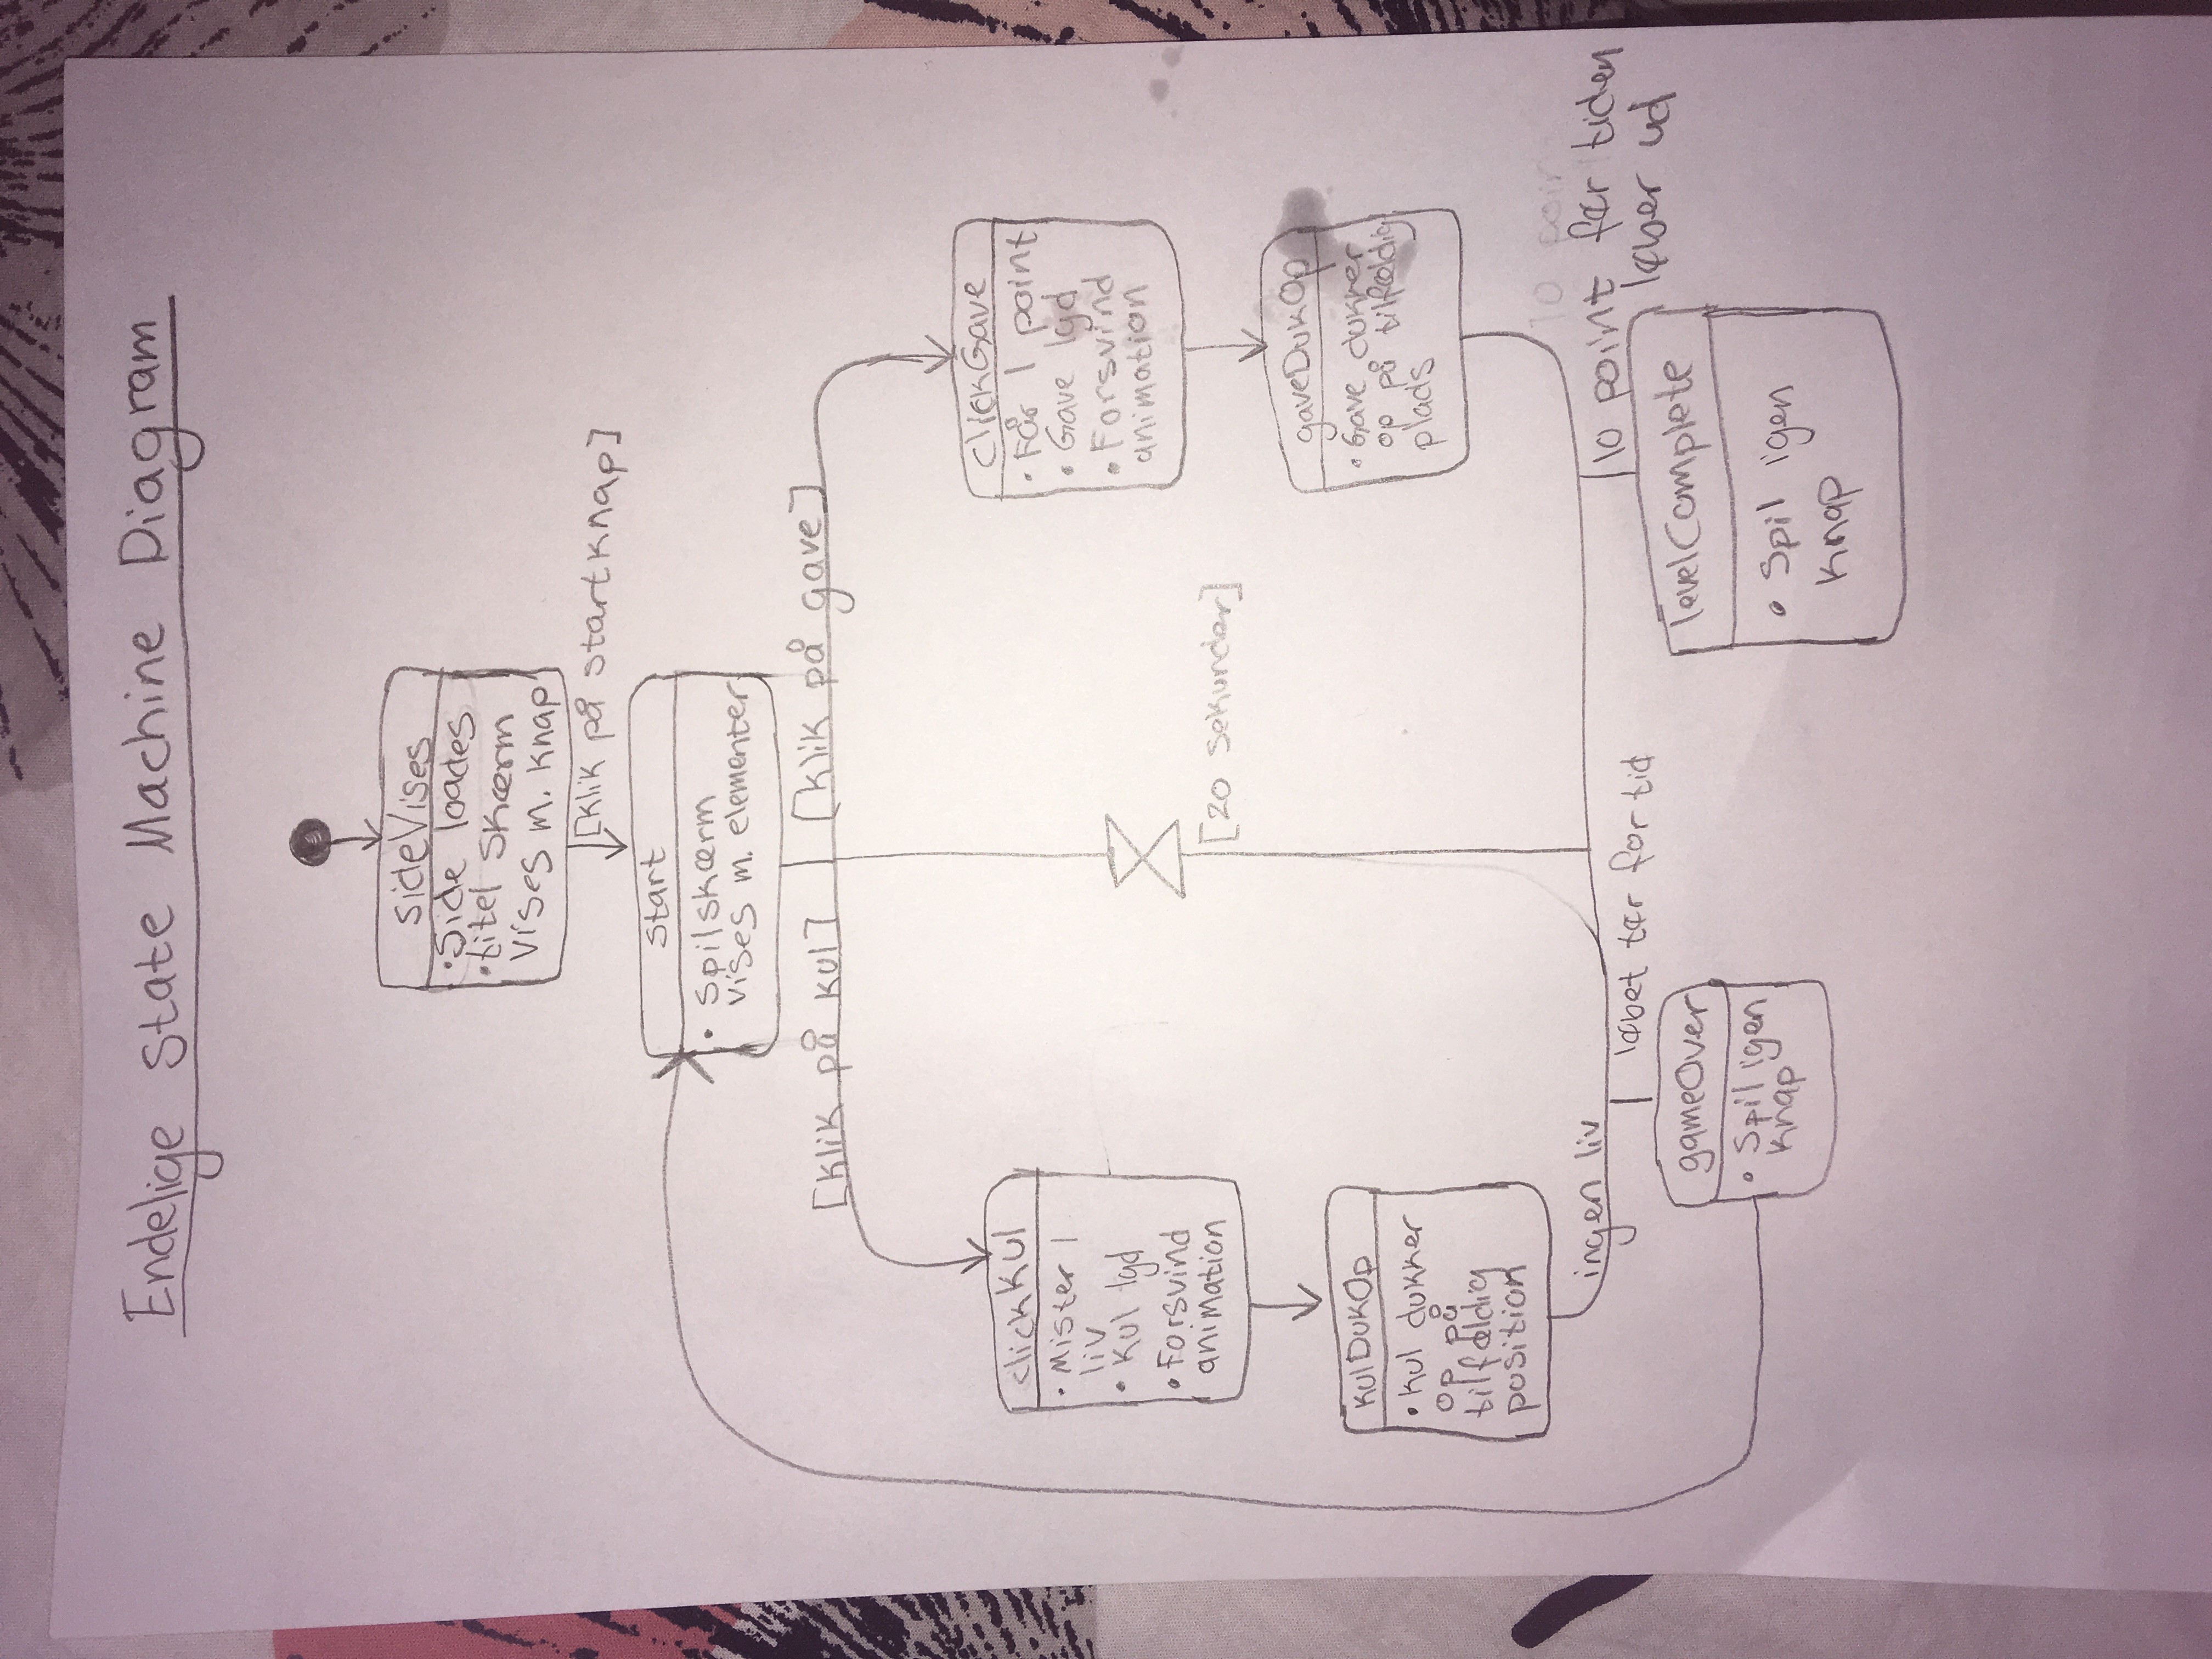 Endelige State Machine Diagram
sideVises
• Side loades
• titel skærm
vises m. knap
[klik på startknap]
start
• spilskærm
vises m. elementer
[klik på kul]
[klik på gave]
clickKul
• Mister 1
liv
• Kul lyd
• Forsvind
animation
clickGave
• Får 1 point
• Gave lyd
• Forsvind
animation
[20 sekunder]
kulDukOp
• kul dukker
op på
tilfældig
position
gaveDukOp
• Gave dukker
op på tilfældig
plads
ingen liv
løbet tør for tid
10 point før tiden
løber ud
gameOver
• Spil igen
knap
levelComplete
• Spil igen
knap